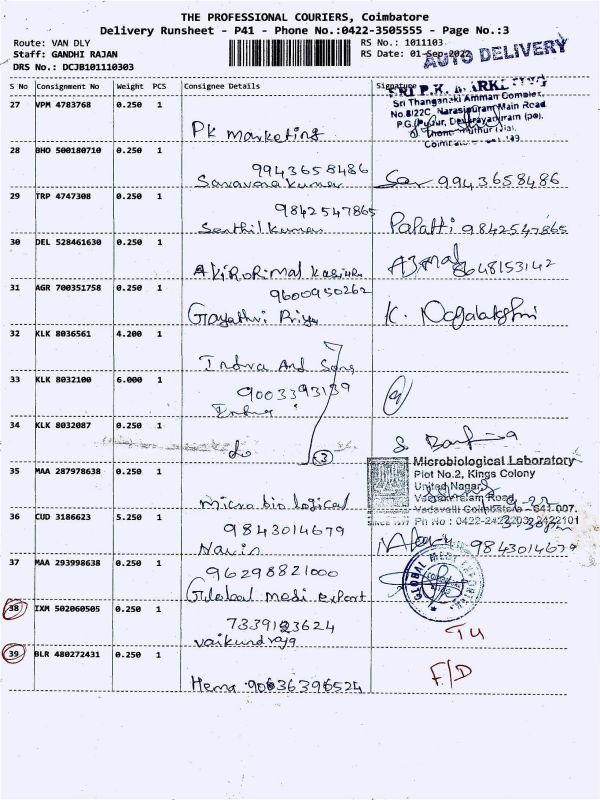 THE PROFESSIONAL COURIERS, Coimbatore
Delivery Runsheet - P41 - Phone No.:0422-3505555 - Page No.:3
Route: VAN DLY
RS No.: 1011103
Staff: GANDHI RAJAN
RS Date: 01-Sep-2022
AUTO DELIVERY
DRS No.: DCJB101110303
S No Consignment No Weight PCS Consignee Details Signature
SRI P.K. MARKETING
Sri Thangammal Amman Complex,
No.8/22C, Narasipuram Main Road
27 VPM 4783768 0.250 1
PK marketing
28 BHO 500180710 0.250 1
9943658486
Saravana kumar Sar 9943658486
29 TRP 4747308 0.250 1
9842547865
Senthil kumar Papatti 9842547865
30 DEL 528461630 0.250 1
Ajmal 8648153142
31 AGR 700351758 0.250 1
9600950262
Gayathri Priya K. Nagalakshmi
32 KLK 8036561 4.200 1
Indra And Sons
33 KLK 8032100 6.000 1
9003393139
34 KLK 8032087 0.250 1
do
3
35 MAA 287978638 0.250 1
Microbiological Laboratory
Plot No.2, Kings Colony
United Nagar
Vadavalli Coimbatore - 641 007.
SINCE 1977 Ph No : 0422-2422203, 2422101
Micro biological
36 CUD 3186623 5.250 1
9843014679
Navin 9843014679
37 MAA 293998638 0.250 1
96298821000
Gulobal medi Export
GLOBAL MEDI EXPORTS
38 IXM 502060505 0.250 1
7339123624
Vaikundraja
39 BLR 480272431 0.250 1
F/D
Hema 90636396524